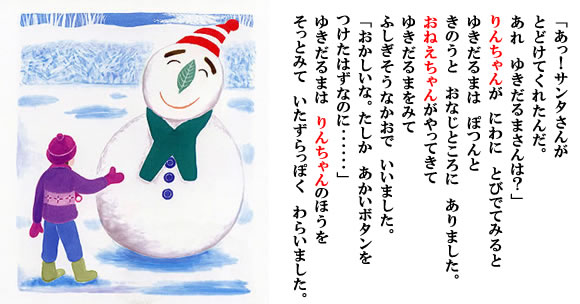 「あっ！サンタさんが
とどけてくれたんだ。
あれ　ゆきだるまさんは？」
りんちゃんが　にわに　とびでてみると
ゆきだるまは　ぽつんと
きのうと　おなじところに　ありました。
おねえちゃんがやってきて
ゆきだるまをみて
ふしぎそうなかおで　いいました。
「おかしいな。たしか　あかいボタンを
つけたはずなのに・・・・・・」
ゆきだるまは　りんちゃんのほうを
そっとみて　いたずらっぽく　わらいました。